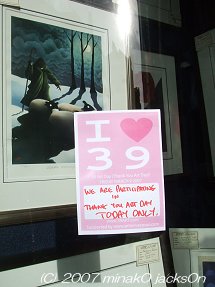 I ♥
3 9
WE ARE PARTICIPATING
IN
THANK YOU ART DAY
TODAY ONLY.
(C) 2007 minakO jacksOn